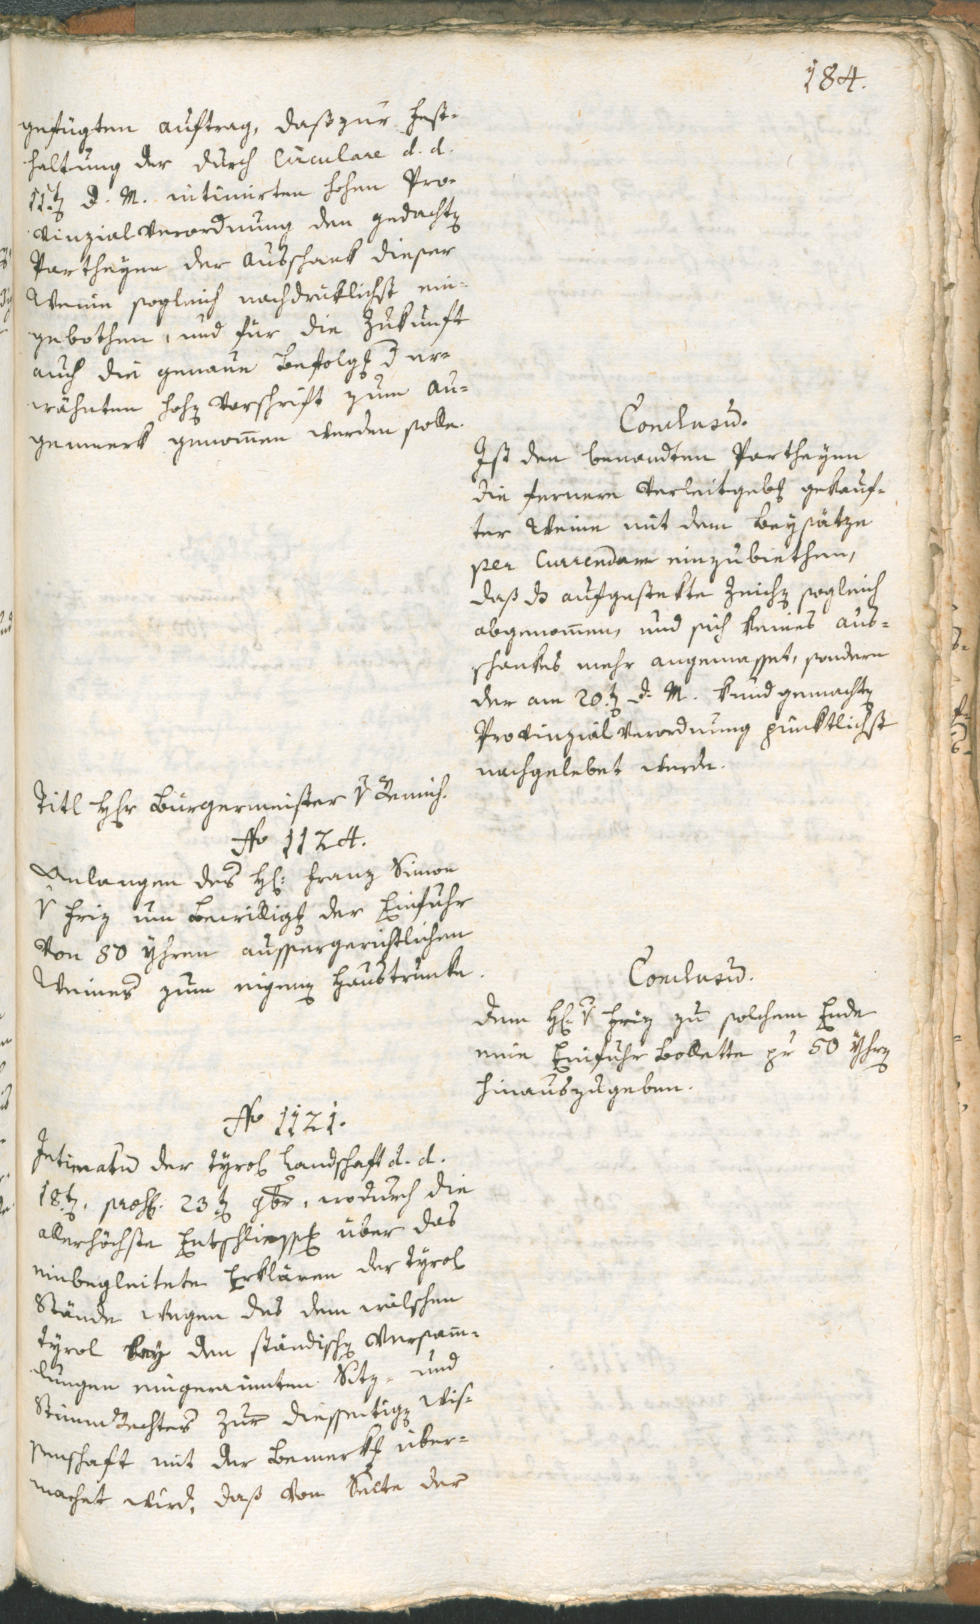 184.
gefügten Auftrag, daß zur Fest-
haltung der durch Circulare d. d.
11.t d. M. intimirten hohen Pro-
vinzialverordnung den gedacht
Partheyen der Ausschank dieser
Weine sogleich nachdrüklichst ein-
gebothen, und für die Zukunft
auch die genaue Befolgg d er-
wähnten hoh Vorschrift zum Au-
genmerk genommen werden solle.
Conclusum.
Ist den benandten Partheyen
die fernere Verleitgebg gekauf-
ter Weine mit dem Beysatze
per Currendam einzubiethen,
daß dz aufgestekte Zeich sogleich
abgenommen, und sich keines Aus-
schankes mehr angemasset, sondern
der am 20.t d. M. kundgemacht
Provinzialverordnung pünktlichst
nachgelebet werde.
Titl Hr Bürgermeister v
No 1124.
Anlangen des H: Franz Simon
v Friz um Bewilligg der Einfuhr
von 80 Yhren aussergerichtlichen
Weines zum eigen Haustrunke.
Conclusum.
Dem H: v Friz zu solchem Ende
eine Einfuhr Bollette pr 50 Yhr
hinauszugeben.
No 1121.
Intimatum der tyrol Landschaft d. d.
18.t, 23t 9br, wodurch die
allerhöchste Entschliessg über das
einbegleitete Erklären der tyrol
Stände wegen des dem wälschen
Tyrol bey den ständisch Versamm-
lungen eingeraumten Sitz- und
Stimmrechtes zur diesseitig Wis-
senschaft mit der Bemerkg über-
machet wird, daß von Seite der